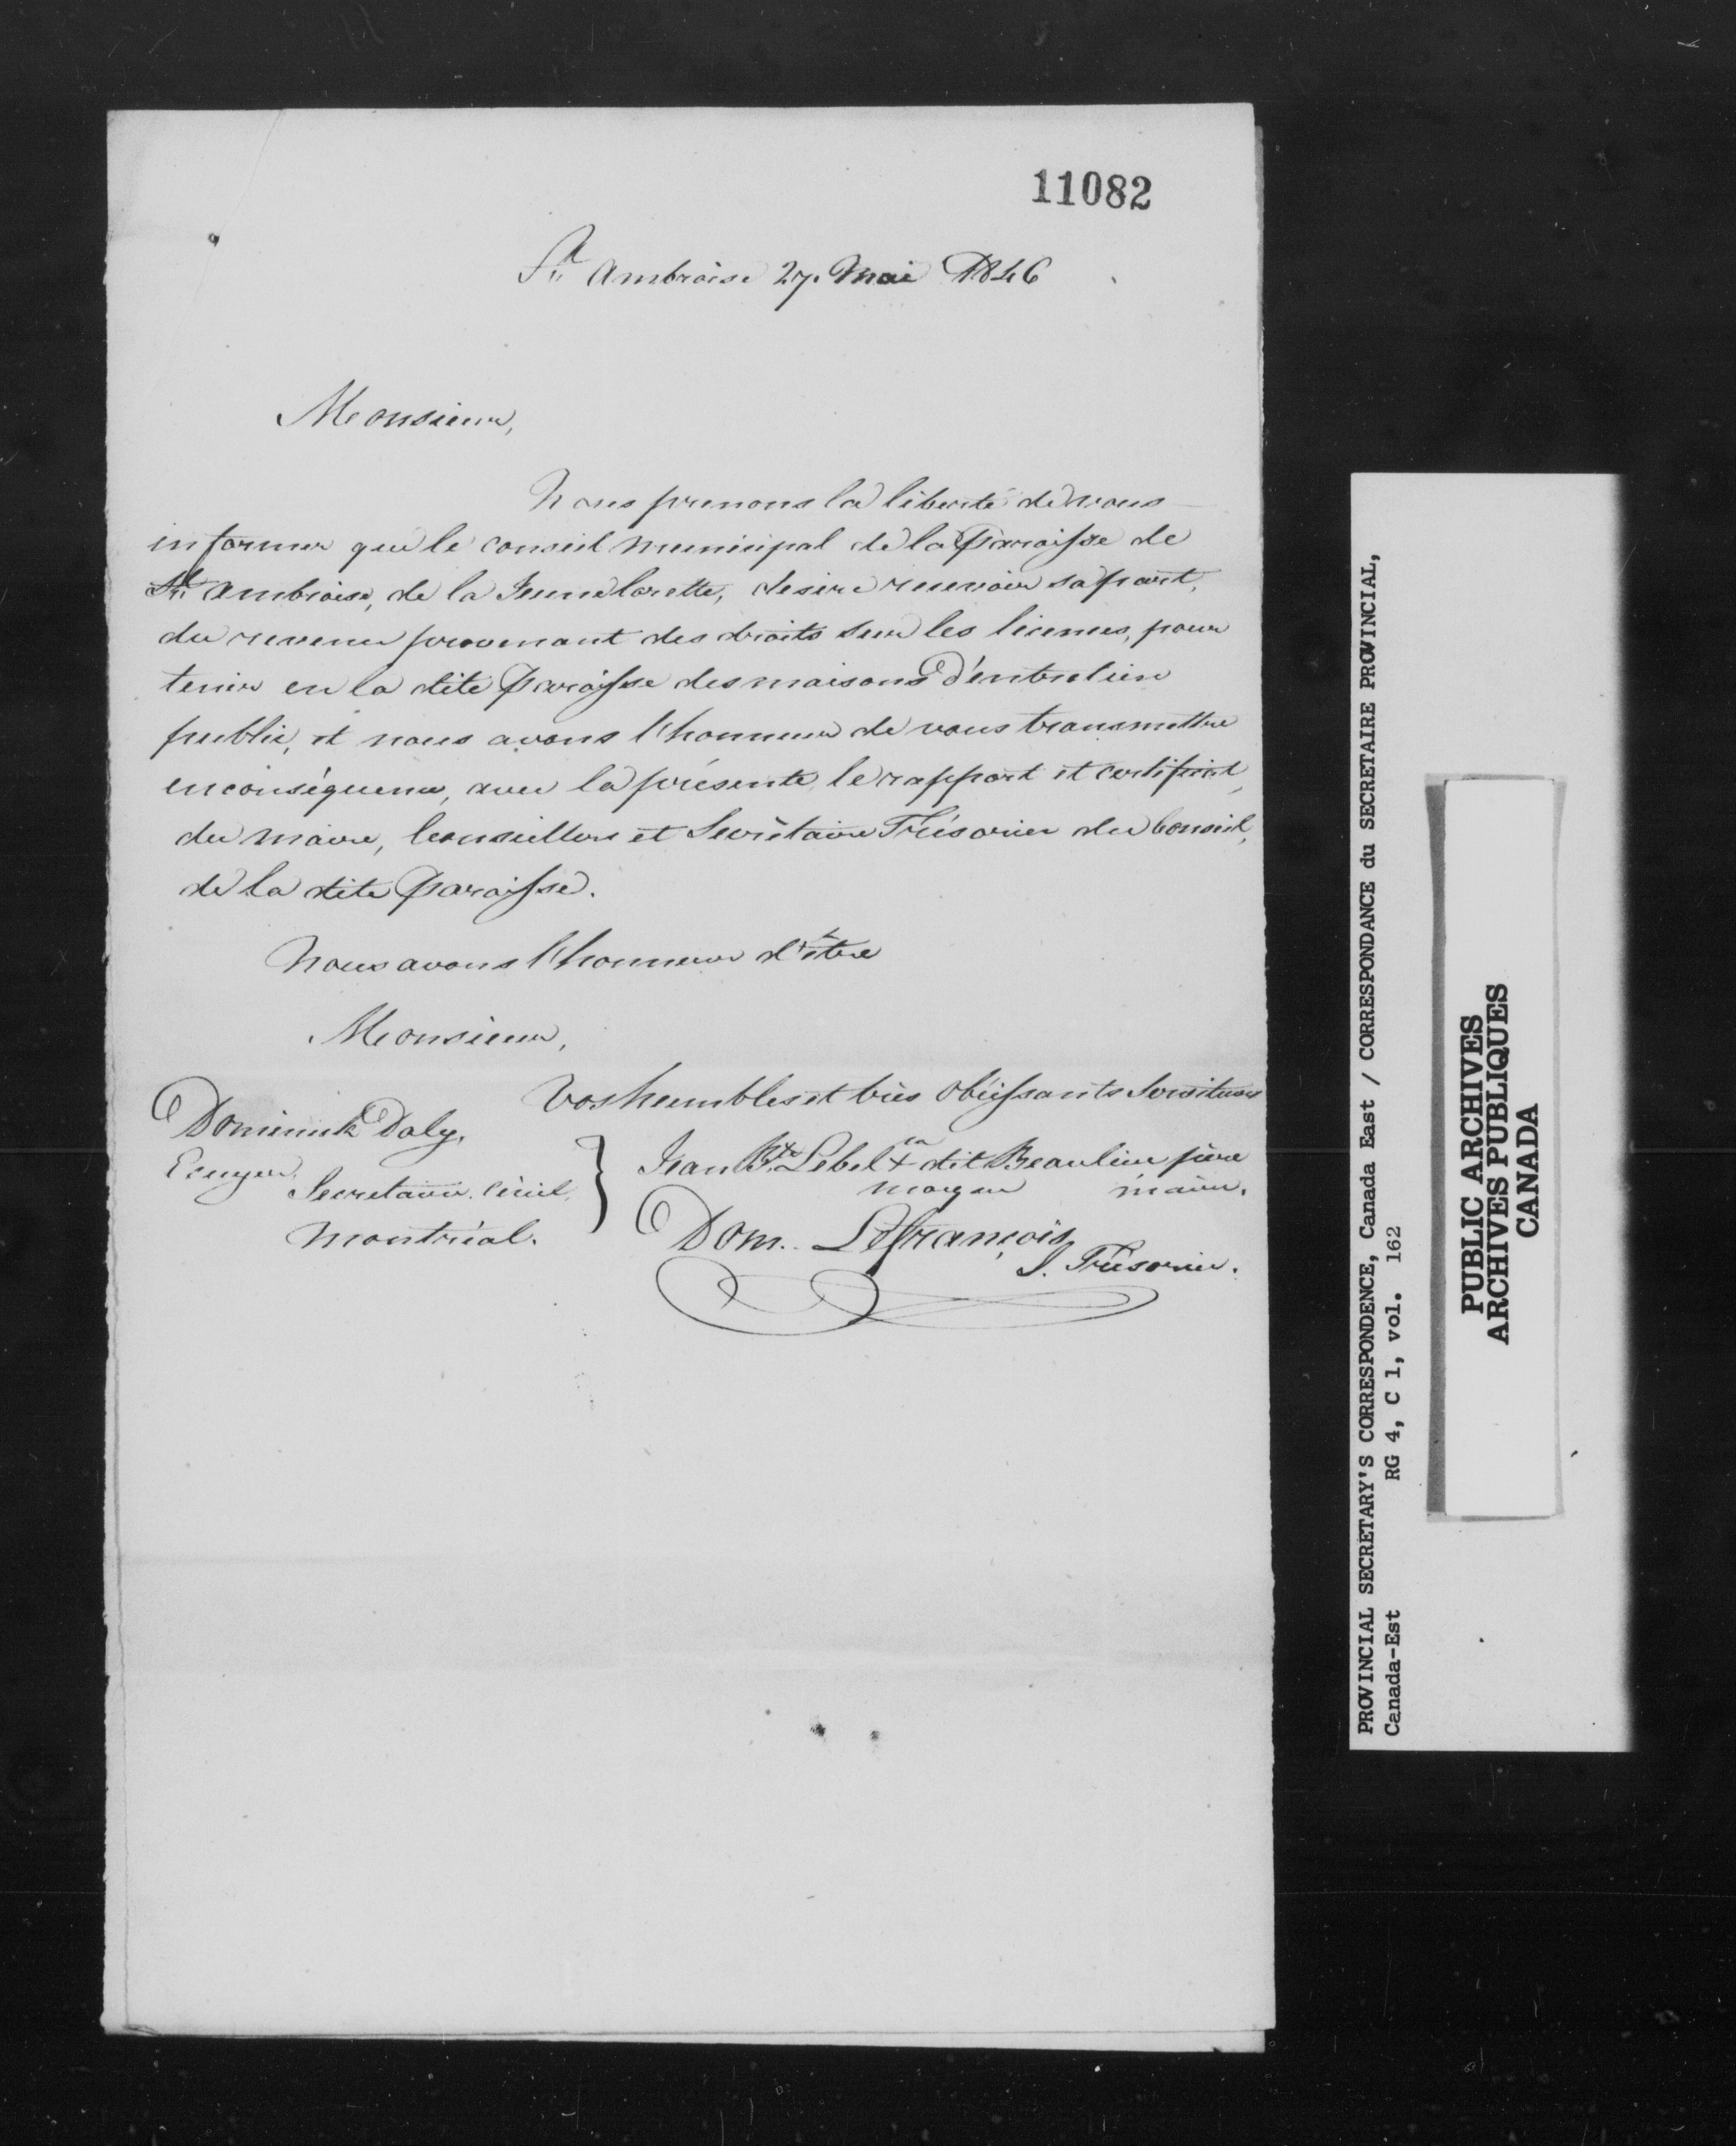 11082
St Ambroise 27. Mai 1846
Monsieur,
Nous prenons la liberté de vous
informer que le conseil municipal de la Paroisse de
St Ambroise, de la Jeune lorette, desire recevoir sa part,
du revenu provenant des droits sur les licences, pour
tenir en la dite Paroisse des maisons D'entretien
public, et nous avons l'honneur de vous transmettre
en conséquence, avec la présente, le rapport et certificat,
du maire, Conseillers et Secrétaire Trésorier du Conseil,
de la dite Paroisse.
Nous avons l'honneur d'être
Monsieur,
Vos humbles et très Obéissants Serviteurs
Dominick Daly,
Ecuyer,
Secretaire Civil,
Montréal.
Jean Bte Lebel sa + dit Beaulieu père
marque maire.
Dom. Lefrançois
S. Trésorier.
PROVINCIAL SECRETARY'S CORRESPONDENCE, Canada East / CORRESPONDANCE du SECRETAIRE PROVINCIAL,
Canada-Est RG 4, C 1, vol. 162
PUBLIC ARCHIVES
ARCHIVES PUBLIQUES
CANADA